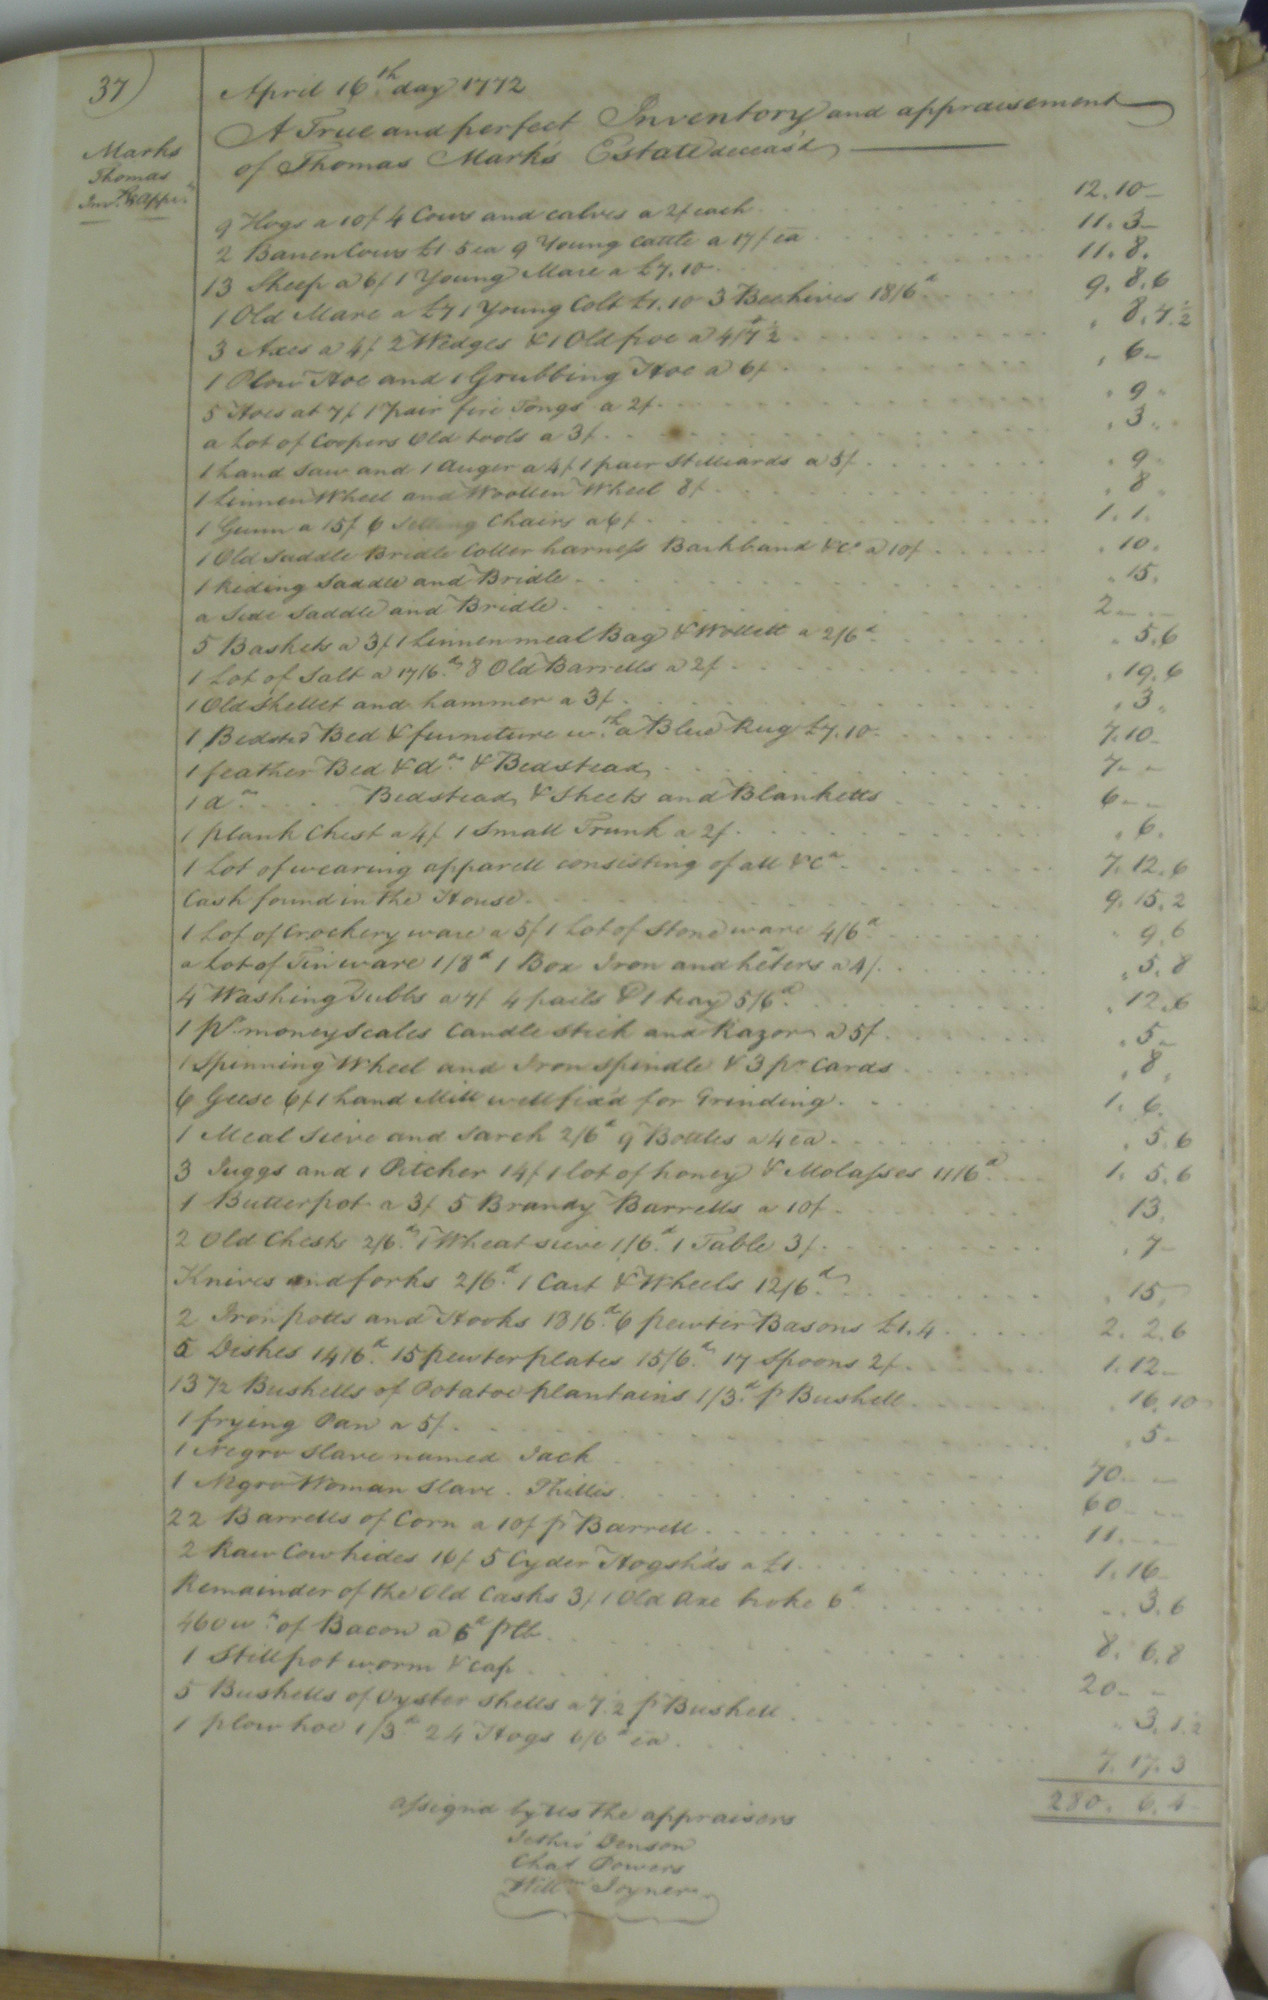 37)
April 16th day 1772
A True and perfect Inventory and appraisement
of Thomas Marks Estate deceas'd
Marks
Thomas
Inv.ty & App.t
9 Hogs a 10/ 4 Cows and calves a 2£ each 12.10-
2 Barren Cows £1 5 ea 9 Young Cattle a 17/ ea 11.3-
13 Sheep a 6/ 1 Young Mare a £7.10 11.8.
1 Old Mare a £7 1 Young Colt £1.10 3 Beehives 18/6d 9.8.6
3 Axes a 4/ 2 Wedges & 1 Old froe a 4/7½ 8.7½
1 Plow Hoe and 1 Grubbing Hoe a 6/ 6-
5 Hoes at 7/ 1 pair fire Tongs a 2/ 9
a Lot of Coopers Old tools a 3/ 3
1 hand Saw and 1 Auger a 4/ 1 pair Stilliards a 5/ 9
1 Linnen Wheel and Woollin Wheel 8/ 8
1 Gunn a 15/ 6 Setting Chairs a 6/ 1.1.
1 Old Saddle Bridle Coller harness Backband &Ca a 10/ 10.
1 Riding Saddle and Bridle 15.
a Side Saddle and Bridle 2--
5 Baskets a 3/ 1 Linnen meal Bag & Wollett a 2/6d 5.6
1 Lot of Salt a 17/6d 8 Old Barrells a 2/ 19.6
1 Old Skellet and hammer a 3/ 3
1 Bedstd Bed & furneture wth a Blue Rug £7.10 7.10-
1 feather Bed & do & Bedstead 7--
1 do Bedstead & Sheets and Blanketts 6--
1 plank Chest a 4/ 1 Small Trunk a 2/ 6.
1 Lot of wearing apparell consisting of all &Ca 7.12.6
Cash found in the House 9.15.2
1 Lot of Crockery ware a 5/ 1 Lot of Stone ware 4/6d 9.6
a Lot of Tin ware 1/8d 1 Box Iron and heters a 4/ 5.8
4 Washing Tubbs a 7/ 4 pails & 1 tray 5/6d 12.6
1 pr money Scales Candle stick and Razor a 5/ 5-
1 Spinning Wheel and Iron Spindle & 3 pr Cards 8
6 Geese 6/ 1 hand Mill well fix'd for Grinding 1.6.
1 Meal Sieve and Sarch 2/6d 9 Bottles a 4 ea 5.6
3 Juggs and 1 Pitcher 14/ 1 lot of honey & Molasses 11/6d 1.5.6
1 Butterpot a 3/ 5 Brandy Barrells a 10/ 13.
2 Old Chests 2/6d 1 Wheat sieve 1/6d 1 Table 3/ 7-
Knives and forks 2/6d 1 Cart & Wheels 12/6d 15.
2 Iron potts and Hooks 18/6d 6 pewter Basons £1.4 2.2.6
5 Dishes 14/6d 15 pewter plates 15/6d 17 Spoons 2/ 1.12-
13½ Bushells of Potatoe plantains 1/3d p Bushell 16.10
1 frying Pan a 5/ 5-
1 Negro Slave named Jack 70--
1 Negro Woman Slave Phillis 60--
22 Barrells of Corn a 10/ p Barrell 11--
2 Raw Cow hides 16/ 5 Cyder Hogshds a £1 1.16
Remainder of the Old Casks 3/ 1 Old Axe broke 6d 3.6
400 wt of Bacon a 5d p lb 8.6.8
1 Still pot worm & cap 20--
5 Bushells of Oyster shells a 7.2 p Bushell 3.1.2
1 plow hoe 1/3d 24 Hogs 6/6d ea 7.17.3
280.6.4
assign'd by us the appraisors
Denson
Chas Powers
Willm Joyner